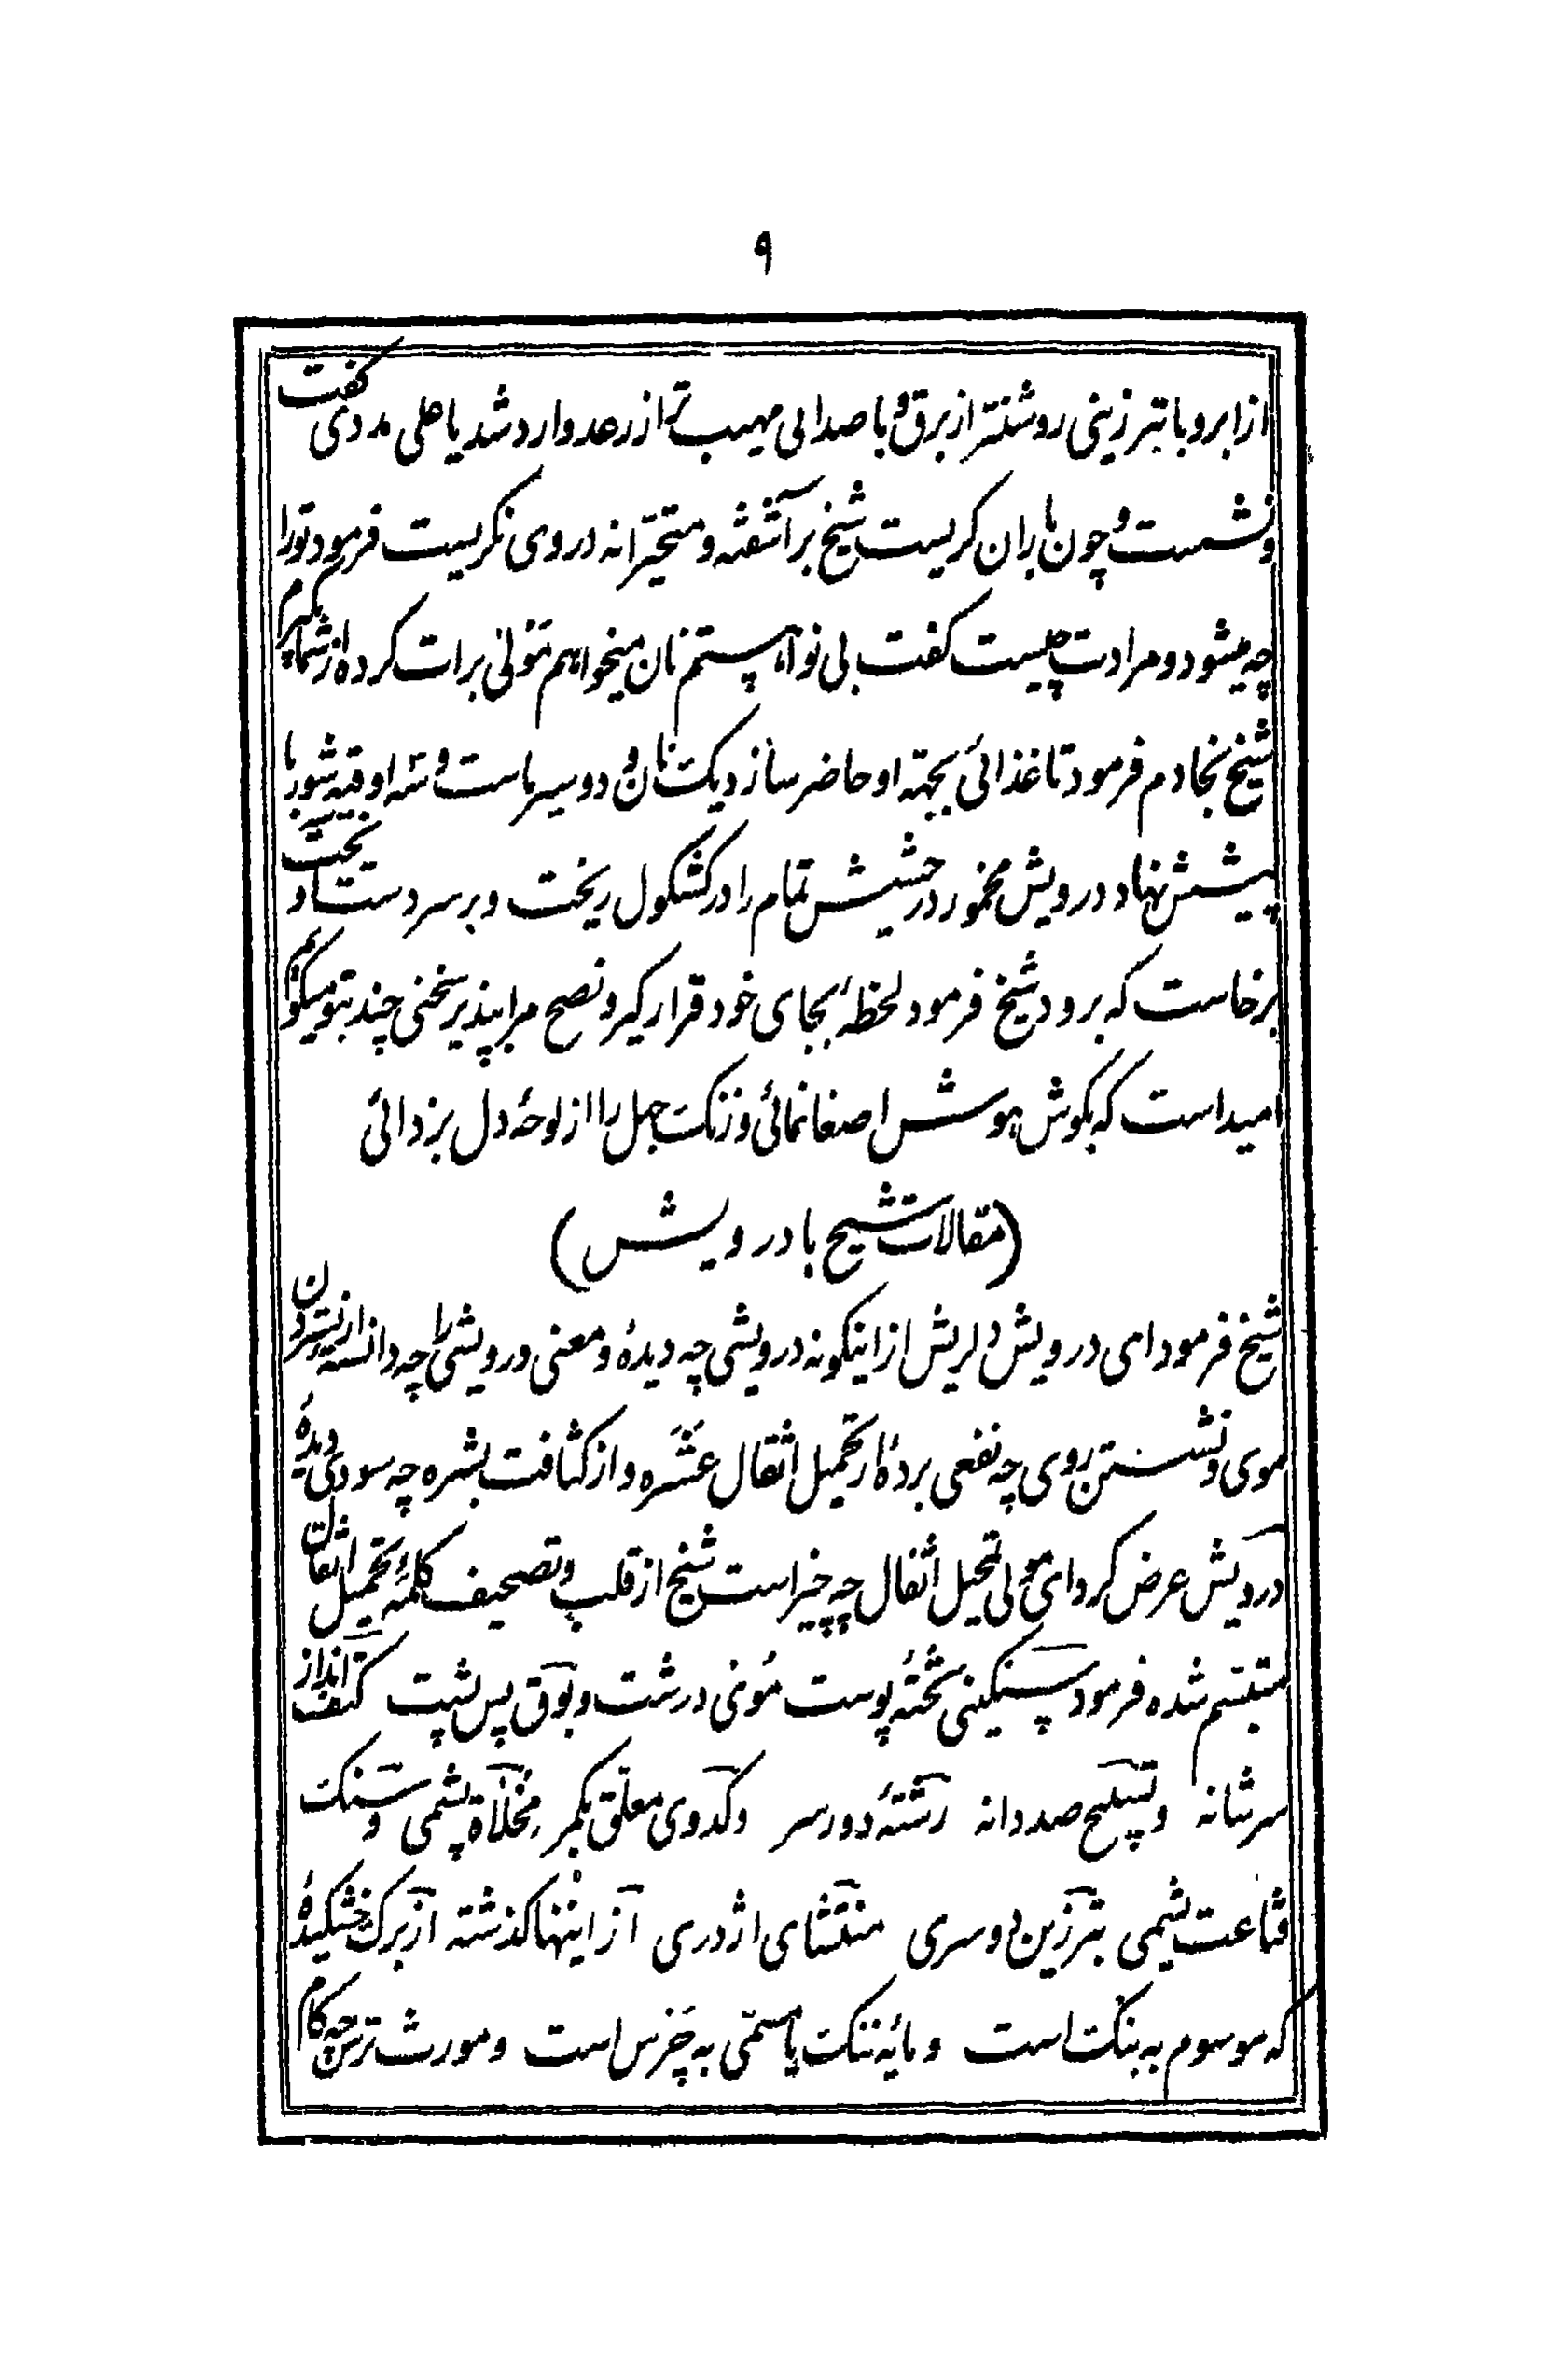 ۹
از ابر و با تبرزینی روشنتر از برق و با صدائی مهیب‌تر از رعد وارد شد یا علی مددی کفت
و نشست و چون باران کریست شیخ بر آشفته و متحیرانه در وی نکریست فرمود تو را
چه میشود و مرادت چیست کفت بی نوا هستم نان میخواهم مولی برات کرده از شما بگیرم
شیخ بخادم فرمود تا غذائی بجهته او حاضر سازد یک نان و دو سیر ماست و سه اوقیه شوربا
پیشش نهاد درویش مخمور در حشیش تمام را در کشکول ریخت و بر سر دست او
برخاست که برود شیخ فرمود لحظهٔ بجای خود قرار کیر و نصح مرا بپذیر سخنی چند بتو میکویم
امید است که بکوش هوش اصغا نمائی و زنک جهل را از لوحهٔ دل بزدائی
(مقالات شیخ با درویش)
شیخ فرمود ای درویش دلریش از اینکونه درویشی چه دیدهٔ و معنی درویشی را چه دانستهٔ از نستردن
موی و نشستن روی چه نفعی بردهٔ از تحمیل اثقال عشره و از کثافت بشره چه سودی دیدهٔ
درویش عرض کرد ای مولی تحمیل اثقال چه چیز است شیخ از قلب و تصحیف کلمهٔ تحمیل اثقال
متبسم شده فرمود سنکینی تختهٔ پوست موئی درشت و بوق پس پشت کتف انداز
سرشانه و تسبیح صد دانه رشتهٔ دور سر و کدوی معلق بکمر مخلاة پشمی و سنک
قناعت شیمی تبرزین دو سری منتشای اژدری از اینها کذشته از برک خشکیدهٔ
که موسوم به بنک است و مایه ننک یا مسمّی به چرس است و مورث ترس چه کام